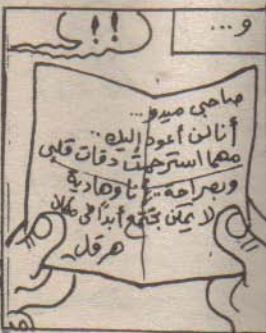 و...
!!
صاحبى ميدو...
أنا لن أعود إليك..
مهما استرحمت دقات قلبى
وبصراحة.. أنا وهادية
لا يمكن نجتمع أبدًا فى مكان
هرقل